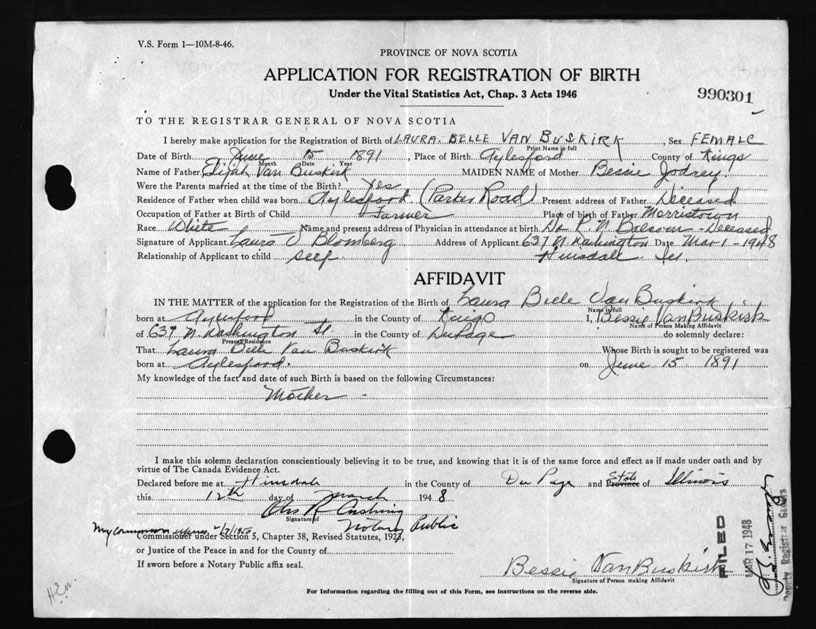 V.S. Form 1—10M-8-46.
PROVINCE OF NOVA SCOTIA
APPLICATION FOR REGISTRATION OF BIRTH
Under the Vital Statistics Act, Chap. 3 Acts 1946
990301
TO THE REGISTRAR GENERAL OF NOVA SCOTIA
I hereby make application for the Registration of Birth of LAURA. BELLE VAN BUSKIRK Sex FEMALE
Print Name in full
Date of Birth June 15 1891, Place of Birth Aylesford County of Kings
Month Date Year
Name of Father Elijah Van Buskirk MAIDEN NAME of Mother Bessie Jodrey
Were the Parents married at the time of the Birth? Yes
Residence of Father when child was born Aylesford. (Parker Road) Present address of Father Deceased
Occupation of Father at Birth of Child Farmer Place of birth of Father Morristown
Race White Name and present address of Physician in attendance at birth Dr. N. Balcom - Deceased
Signature of Applicant Laura V Blomberg Address of Applicant 637 N Washington Date Mar 1 - 1948
Relationship of Applicant to child self Hinsdale Ill.
AFFIDAVIT
IN THE MATTER of the application for the Registration of the Birth of Laura Belle Van Buskirk
Name in full
born at Aylesford in the County of Kings I, Bessie Van Buskirk
Name of Person Making Affidavit
of 637 N. Washington St. in the County of DuPage do solemnly declare:
Present Residence
That Laura Belle Van Buskirk Whose Birth is sought to be registered was
born at Aylesford. on June 15 1891
My knowledge of the fact and date of such Birth is based on the following Circumstances:
Mother -
I make this solemn declaration conscientiously believing it to be true, and knowing that it is of the same force and effect as if made under oath and by
virtue of The Canada Evidence Act.
Declared before me at Hinsdale in the County of Du Page and State Province of Illinois
this 12th day of March 194 8
Signature of
Notary Public
My Commission expires
Commissioner under Section 5, Chapter 38, Revised Statutes, 1923,
or Justice of the Peace in and for the County of
If sworn before a Notary Public affix seal.
Bessie Van Buskirk
Signature of Person making Affidavit
For Information regarding the filling out of this Form, see instructions on the reverse side.
FILED
MAR 17 1948
Deputy Registrar General